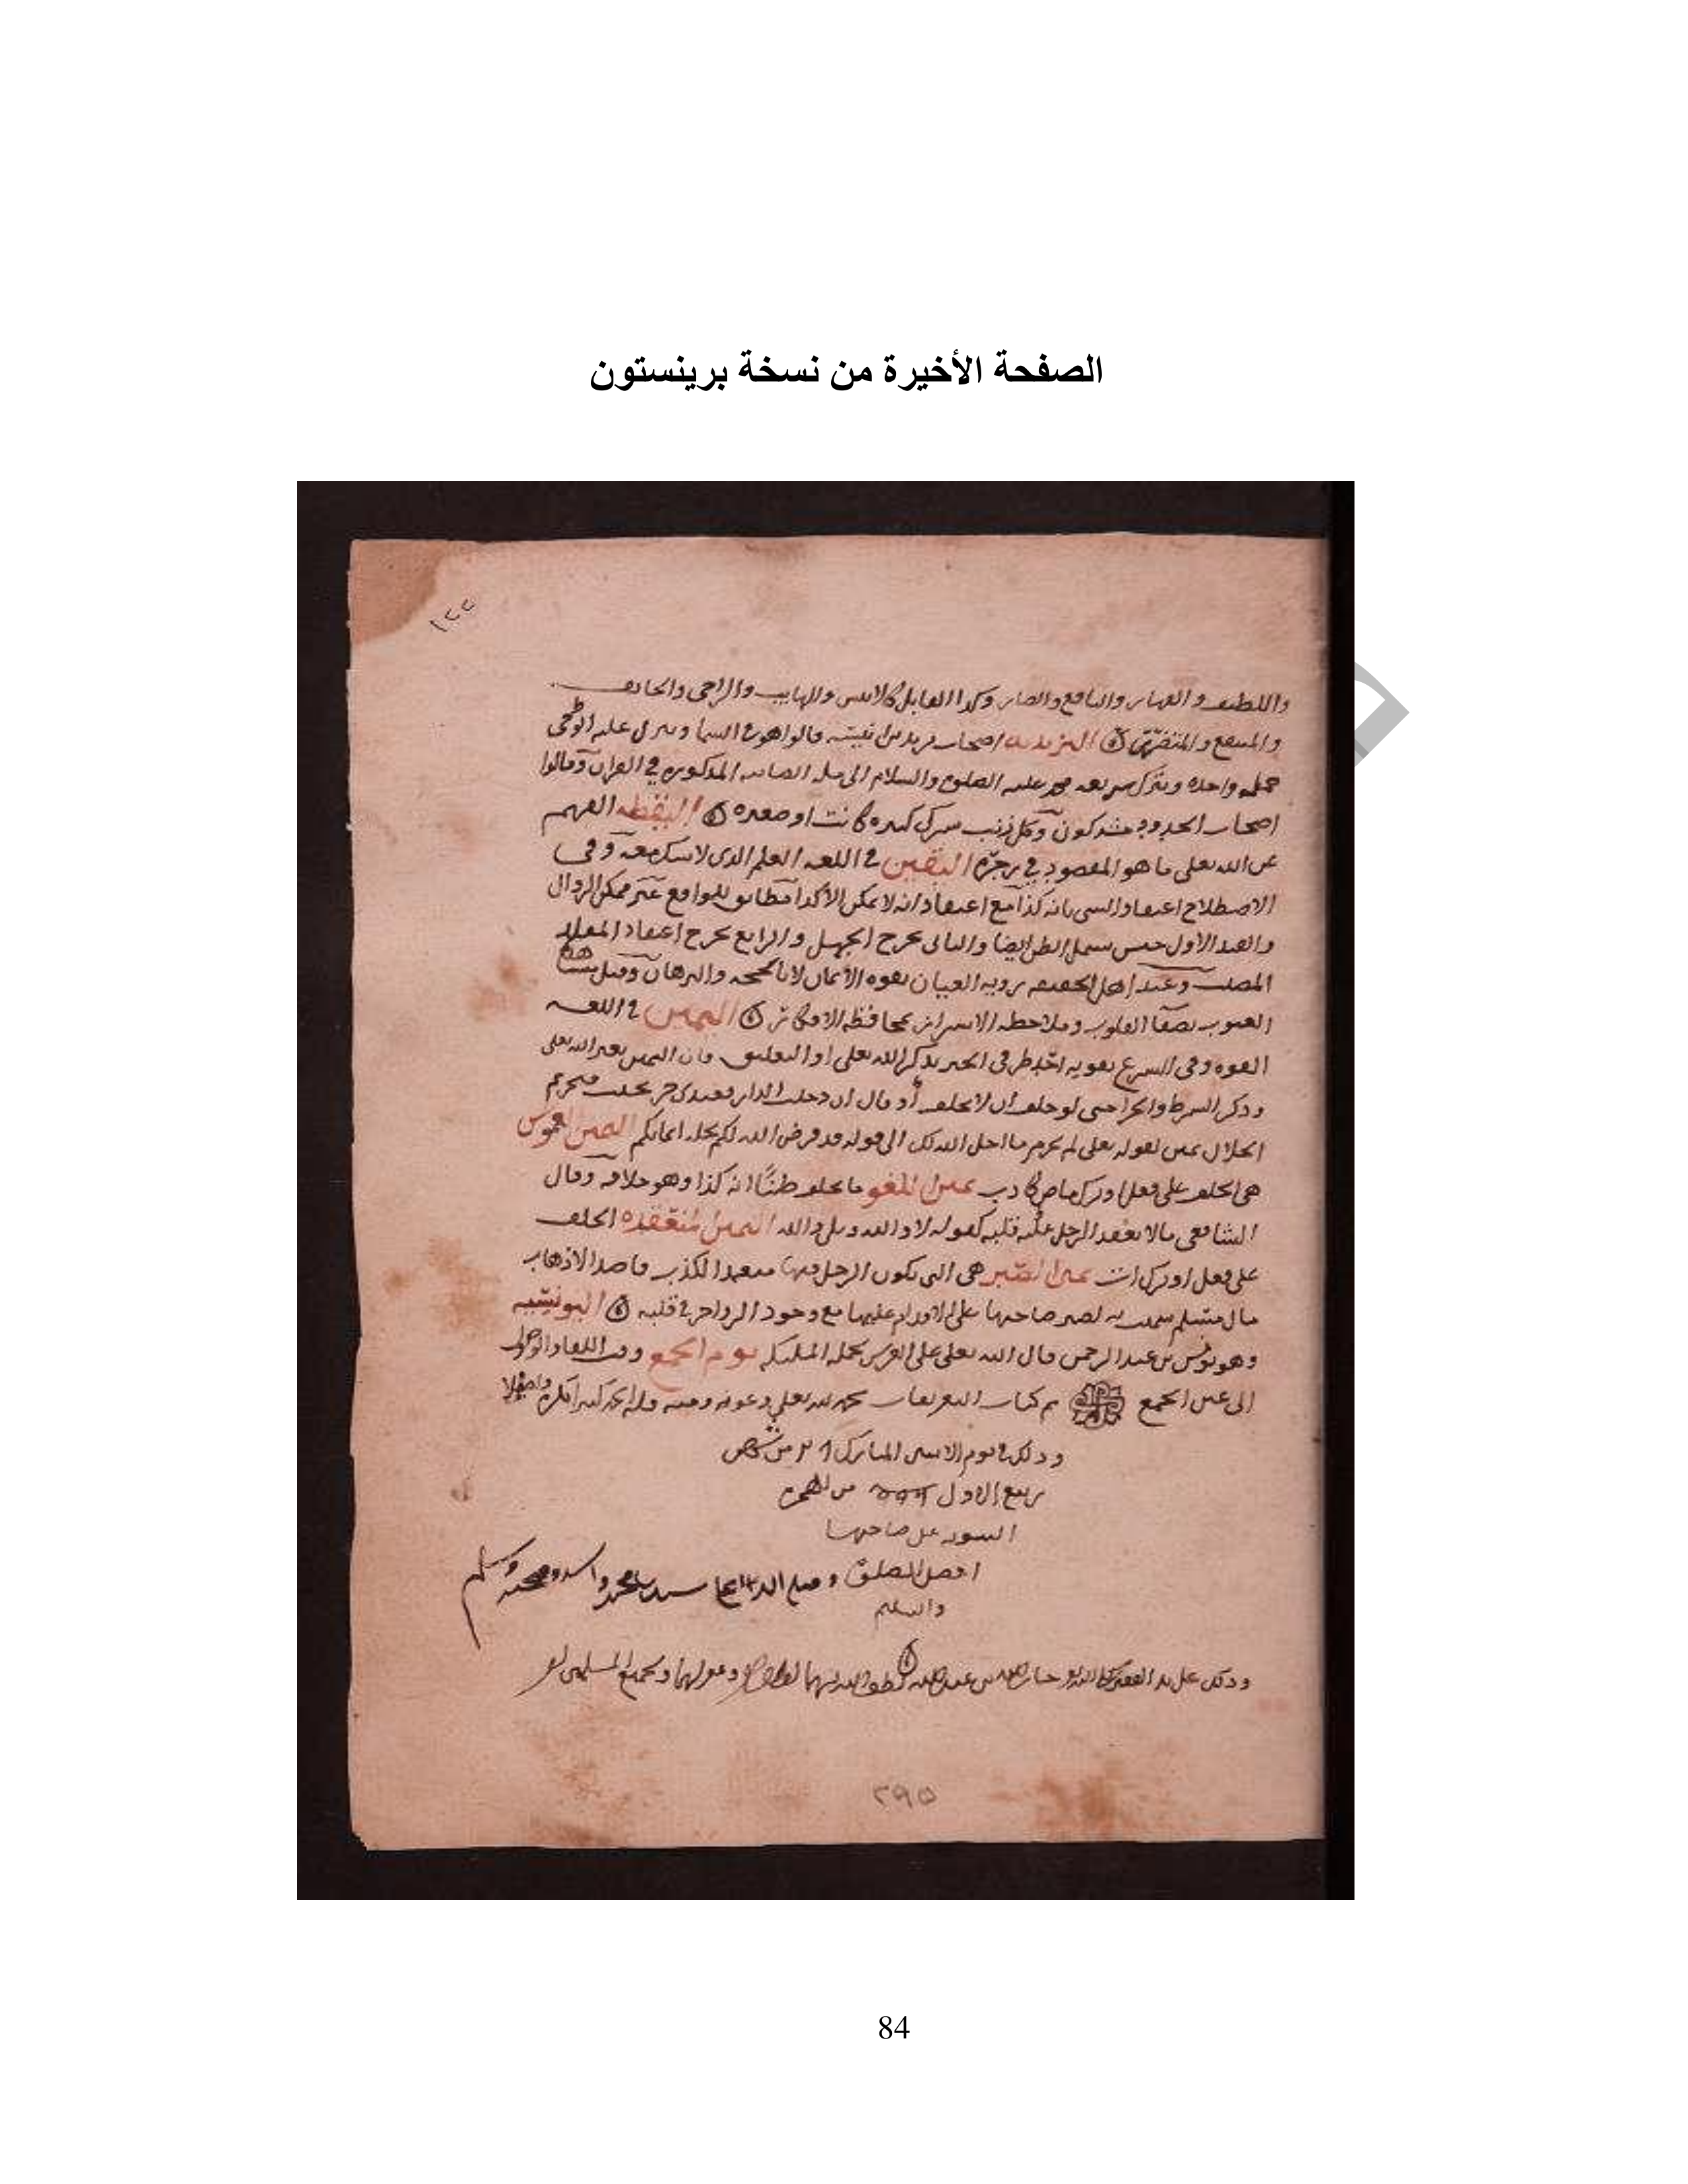 الصفحة الأخيرة من نسخة برينستون
١٢٢
واللطيف والقهار والنافع والضار وكذا القابل كالانس والهايب والراجى والخايف
والمنتفع والمتضرر اليزيديه اصحاب يزيد بن انيسه قالوا هو فى السما وينزل عليه الوحى
جمله واحده ويترك شريعه محمد عليه الصلوة والسلام الى مله الصابيه المذكوره فى القران وقالوا
اصحاب الحدود مشركون وكل ذنب شرك كبيره كانت او صغيره اليقظه الفهم
عن الله تعلى ما هو المقصود فى زجره اليقين فى اللغه العلم الذى لا شك معه وفى
الاصطلاح اعتقاد الشى بانه كذا مع اعتقاد انه لا يمكن الا كذا مطابق للواقع غير ممكن الزوال
والقيد الاول جنس يشمل الظن ايضا والثانى يخرج الجهل والرابع يخرج اعتقاد المقلد
المصيب وعند اهل الحقيقه رويه العيان بقوه الايمان لا بالحجه والبرهان وقيل مشاهده
الغيوب بصفا القلوب وملاحظه الاسرار بمحافظه الافكار اليمين فى اللغه
القوه وفى الشرع تقويه احد طرفى الخبر بذكر الله تعلى او التعليق فان اليمين بغير الله تعلى
وذكر الشرط والجزا حتى لو حلف ان لا يحلف او قال ان دخلت الدار فعبدى حر يحنث فتحريم
الحلال يمين لقوله تعلى لم تحرم ما احل الله لك الى قوله قد فرض الله لكم تحله ايمانكم اليمين الغموس
هى الحلف على فعل او ترك ماض كاذب يمين اللغو ما يحلف ظنًا انه كذا وهو خلافه وقال
الشافعى مالا يعقد الرجل عليه قلبه كقوله لا والله وبلى والله اليمين المنعقده الحلف
على فعل او ترك ات يمين الصبر هى التى يكون الرجل فيها متعمدا الكذب قاصد الاذهاب
مال مسلم سميت به لصبر صاحبها على الاقدام عليها مع وجود الزواجر فى قلبه اليونسيه
وهو يونس بن عبد الرحمن قال الله تعلى على العرش تحمله المليكه يوم الجمع وقت اللقا والوصول
الى عين الجمع تم كتاب التعريفات بحمد الله تعلى وعونه ومنه
وذلك فى يوم الاثنين المبارك من شهر
ربيع الاول من الهجره
النبويه على صاحبها
افضل الصلوة وصلى الله على سيدنا محمد واله وصحبه وسلم
والسلم
وذلك على يد الفقير بن عبد الله لطف الله بهما وغفر لهما ولجميع المسلمين
٢٩٥
84